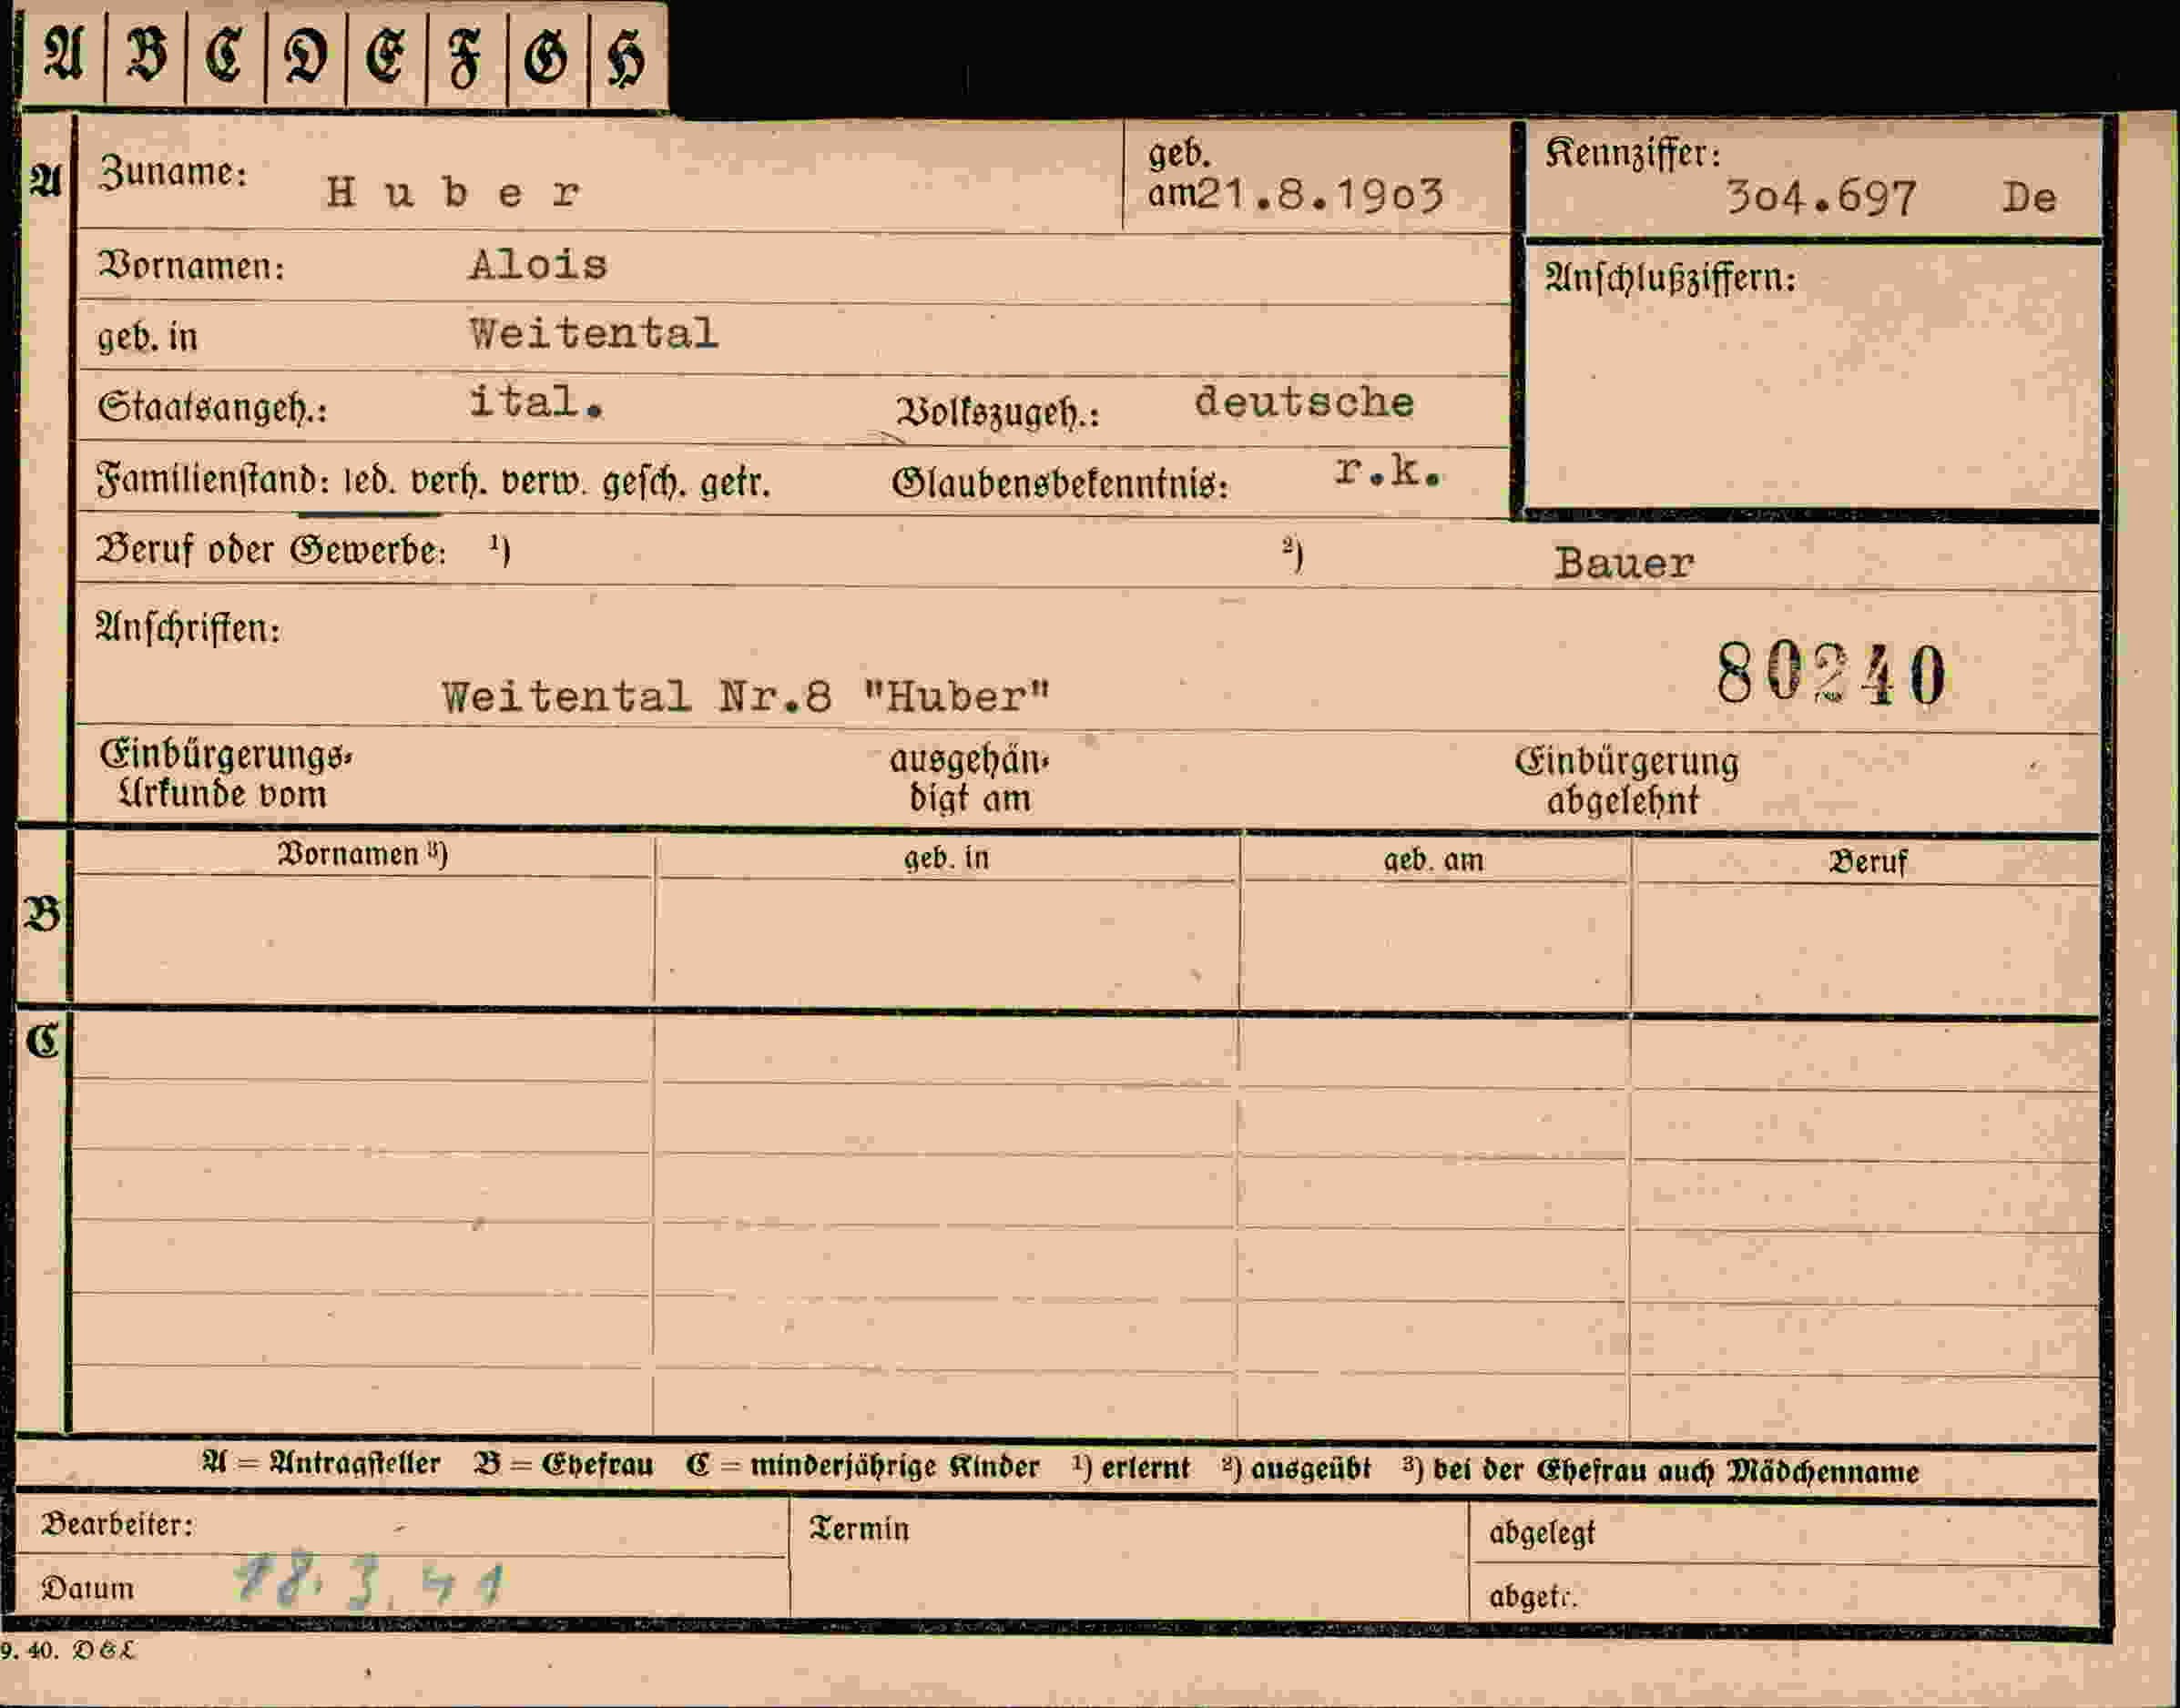 A B C D E F G H
A Zuname: Huber geb. am 21.8.1903 Kennziffer: 304.697 De
Vornamen: Alois Anschlußziffern:
geb. in Weitental
Staatsangeh.: ital. Volkszugeh.: deutsche
Familienstand: led. verh. verw. gesch. getr. Glaubensbekenntnis: r.k.
Beruf oder Gewerbe: ¹) ²) Bauer
Anschriften:
80240
Weitental Nr.8 "Huber"
Einbürgerungs- ausgehän- Einbürgerung
Urkunde vom digt am abgelehnt
Vornamen ³) geb. in geb. am Beruf
B
C
A = Antragsteller B = Ehefrau C = minderjährige Kinder ¹) erlernt ²) ausgeübt ³) bei der Ehefrau auch Mädchenname
Bearbeiter: Termin abgelegt
Datum 18.3.41 abgetr.
9. 40. DGL